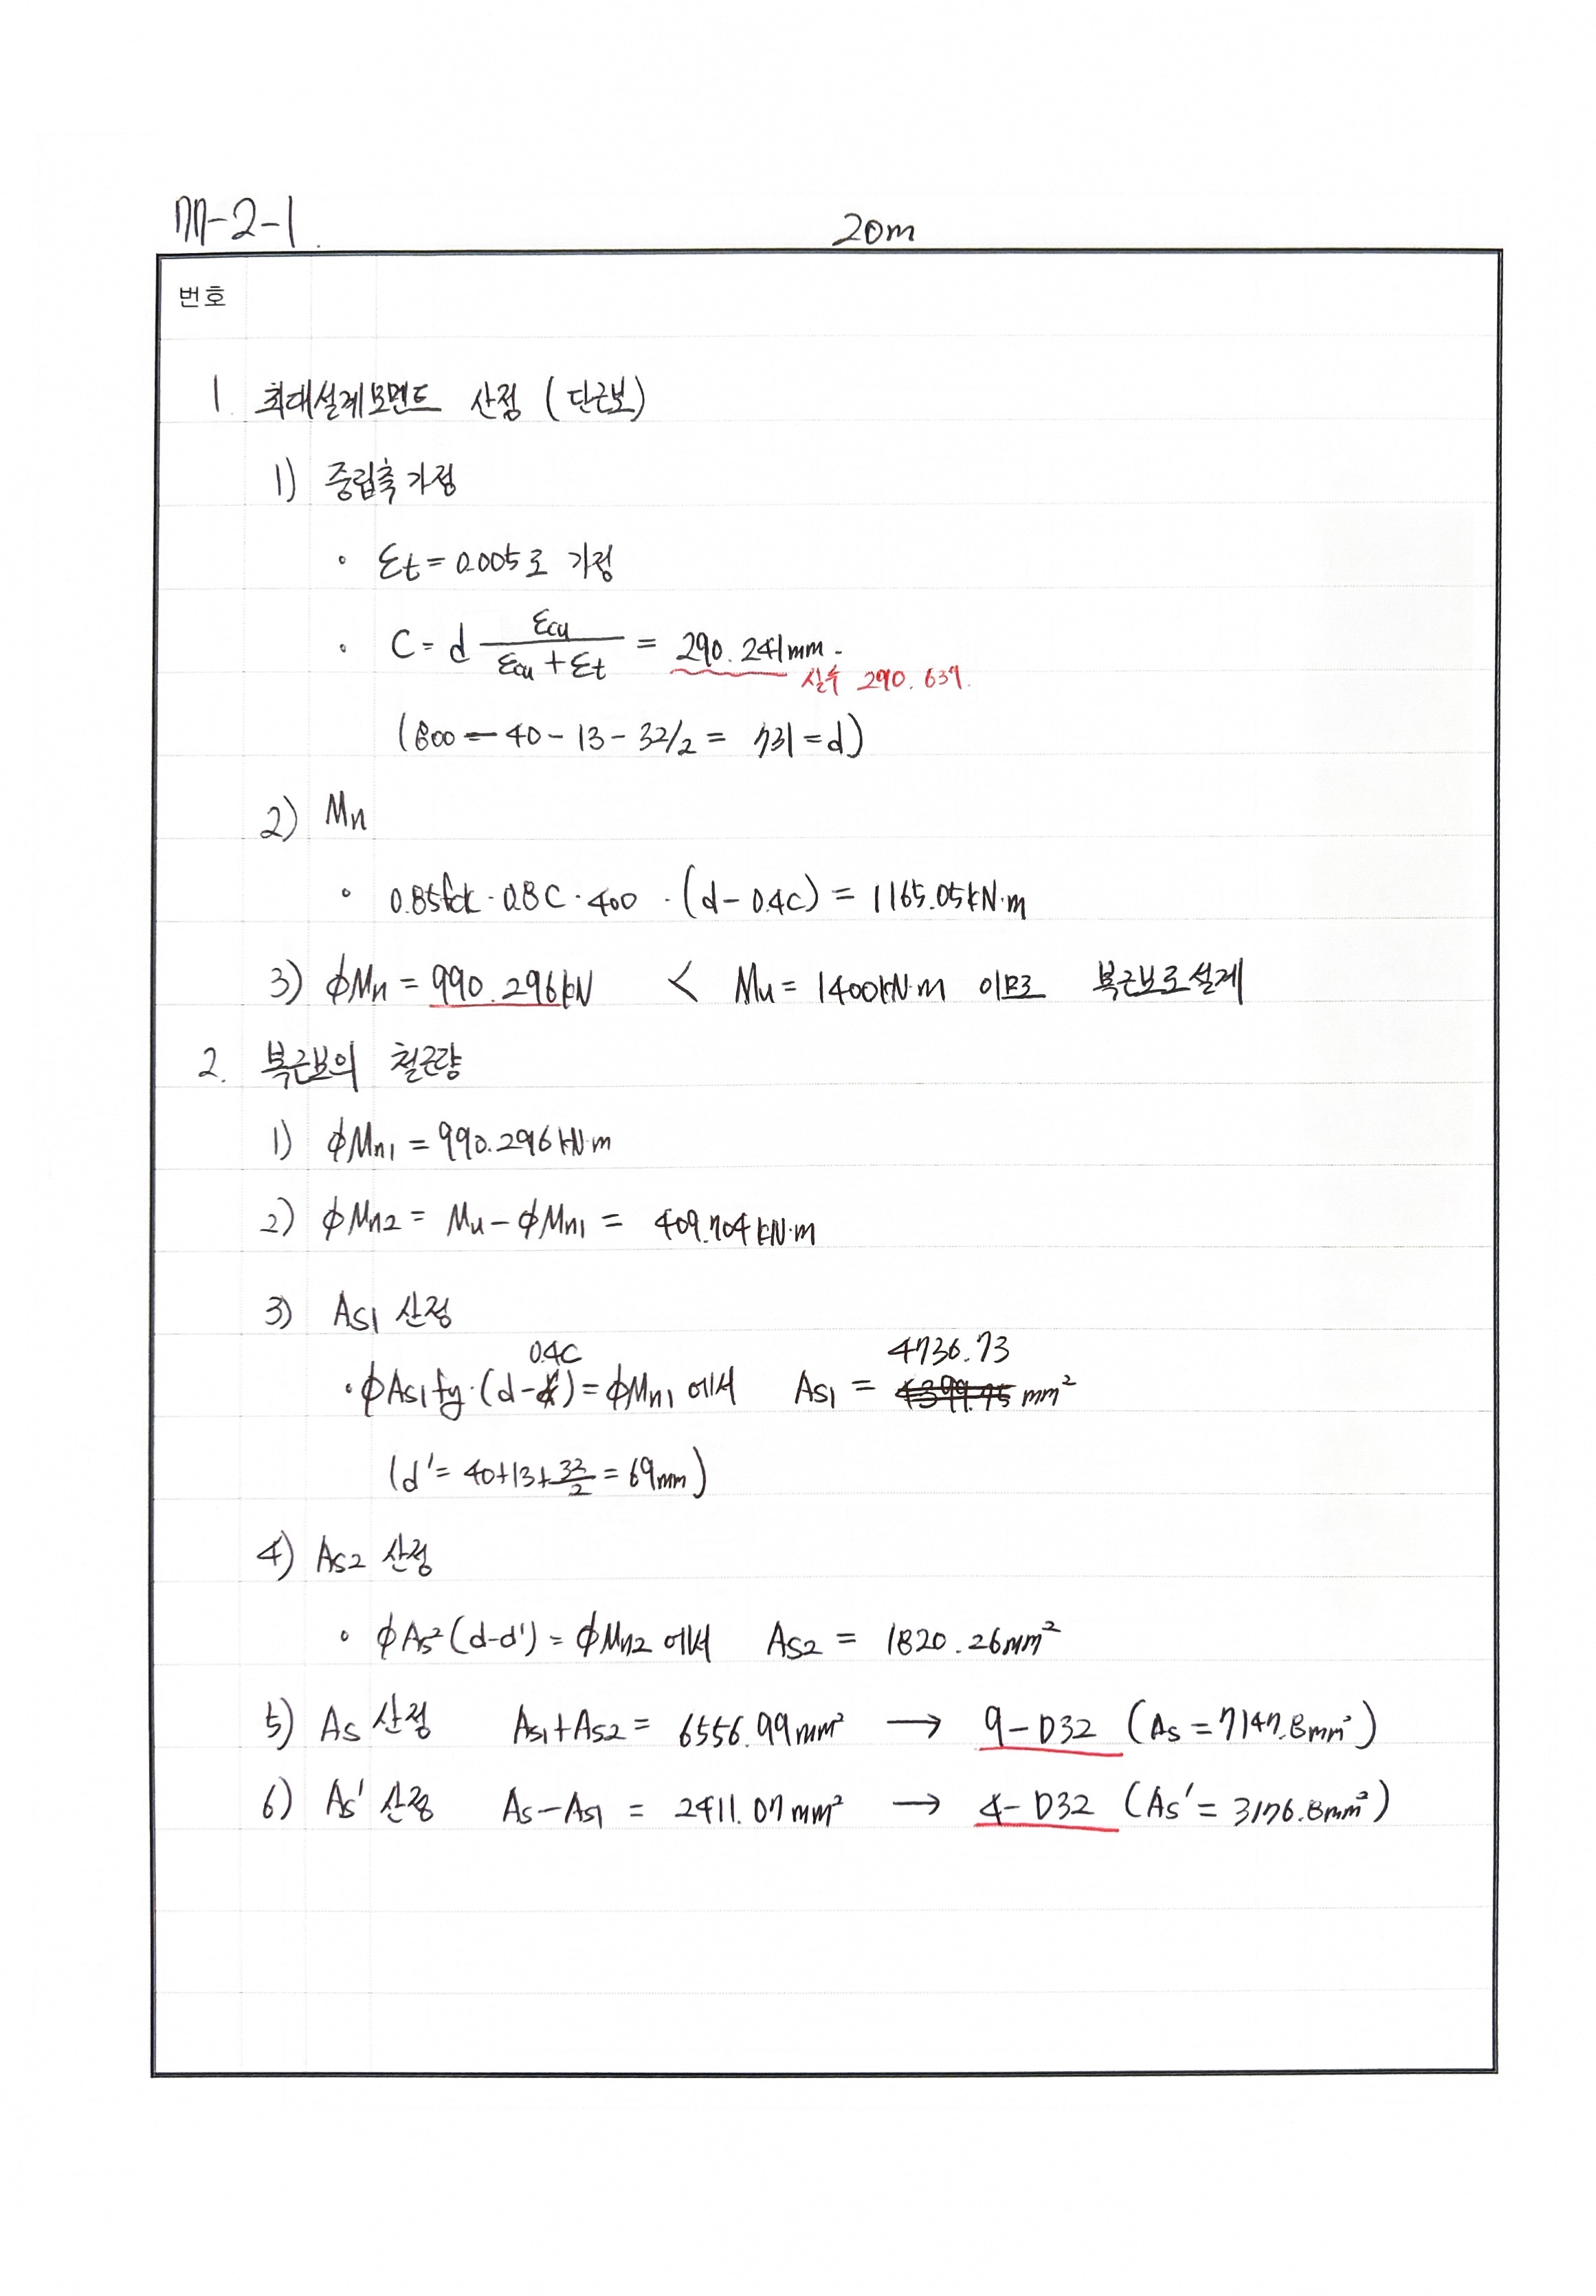 M-2-1.
20m
번호
1. 최대설계모멘트 산정 (단근보)
1) 중립축 가정
• εt = 0.005로 가정
• C = d εcu / (εcu + εt) = 290.241mm -
실수 290.639.
(800 - 40 - 13 - 32/2 = 731 = d)
2) Mn
• 0.85fck · 0.8C · 400 · (d - 0.4C) = 1165.05kN·m
3) φMn = 990.296kN < Mu = 1400kN·m 이므로 복근보로 설계
2. 복근보의 철근량
1) φMn1 = 990.296kN·m
2) φMn2 = Mu - φMn1 = 409.704kN·m
3) As1 산정
0.4C 4736.73
• φAs1fy·(d-) = φMn1 에서 As1 = 4399.75 mm²
(d' = 40+13+32/2 = 69mm)
4) As2 산정
• φAs2(d-d') = φMn2 에서 As2 = 1820.26mm²
5) As 산정 As1+As2 = 6556.99mm² → 9-D32 (As = 7147.8mm²)
6) As' 산정 As-As1 = 2411.07mm² → 4-D32 (As' = 3176.8mm²)